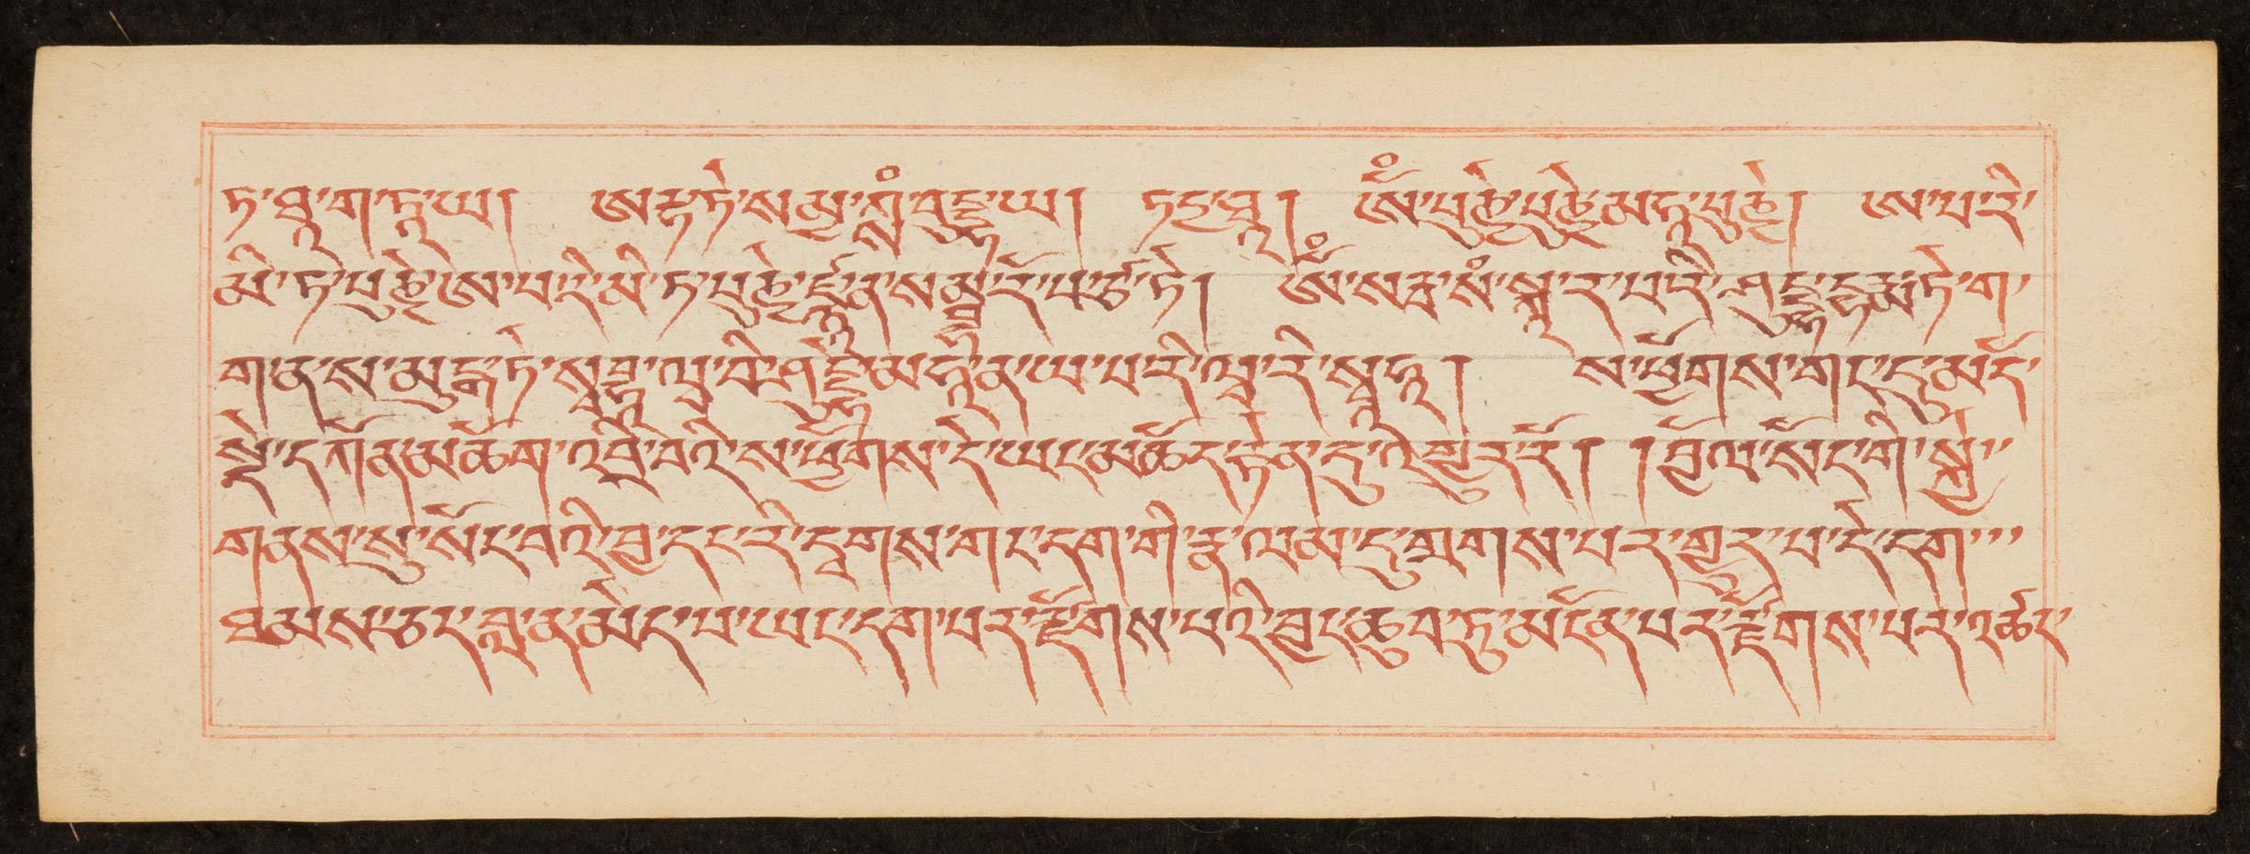 ཏ་ཐཱ་ག་ཏཱ་ཡ། ཨརྷ་ཏེ་སམྱ་ཀྶཾ་བུདྡྷ་ཡ། ཏདྱ་ཐཱ། ཨོཾ་པུཎྱེ་པུཎྱེ་མ་ཧཱ་པུཎྱེ། ཨ་པ་རི་
མི་ཏེ་པུཎྱེ་ཨ་པ་རི་མི་ཏ་པུཎྱེ་རྫྙཱ་ན་སམྦྷཱ་རོ་པ་ཙི་ཏེ། ཨོཾ་སརྦ་སཾ་སྐཱ་ར་པ་རི་ཤུདྡྷ་དྷརྨ་ཏེ་ག་
ག་ན་ས་མུངྒ་ཏེ་སྭ་བྷཱ་ཝ་བི་ཤུདྡྷེ་མ་ཧཱ་ན་ཡ་པ་རི་ཝཱ་རེ་སྭཱ་ཧཱ། ས་ཕྱོགས་གང་དུ་མདོ་
སྡེ་དཀོན་མཆོག་འབྲི་བའི་ས་ཕྱོགས་དེ་ཡང་མཆོད་རྟེན་དུ་འགྱུར་རོ། །བྱོལ་སོང་གི་སྐྱེ་
གནས་སུ་སོང་བའི་བྱ་དང་རི་དྭགས་གང་དག་གི་རྣ་ལམ་དུ་གྲགས་པར་གྱུར་པ་དེ་དག་
ཐམས་ཅད་བླ་ན་མེད་པ་ཡང་དག་པར་རྫོགས་པའི་བྱང་ཆུབ་ཏུ་མངོན་པར་རྫོགས་པར་འཚང་